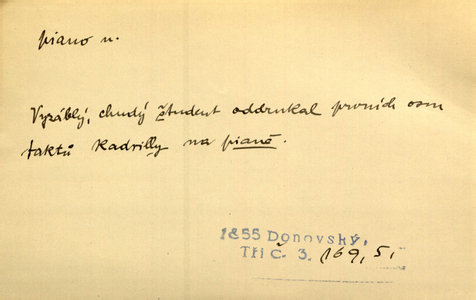 piano n.
Vyzáblý, chudý študent oddrnkal prvních osm
taktů kadrilly na pianě.
1855 Donovský,
Tři č. 3. 169, 5.